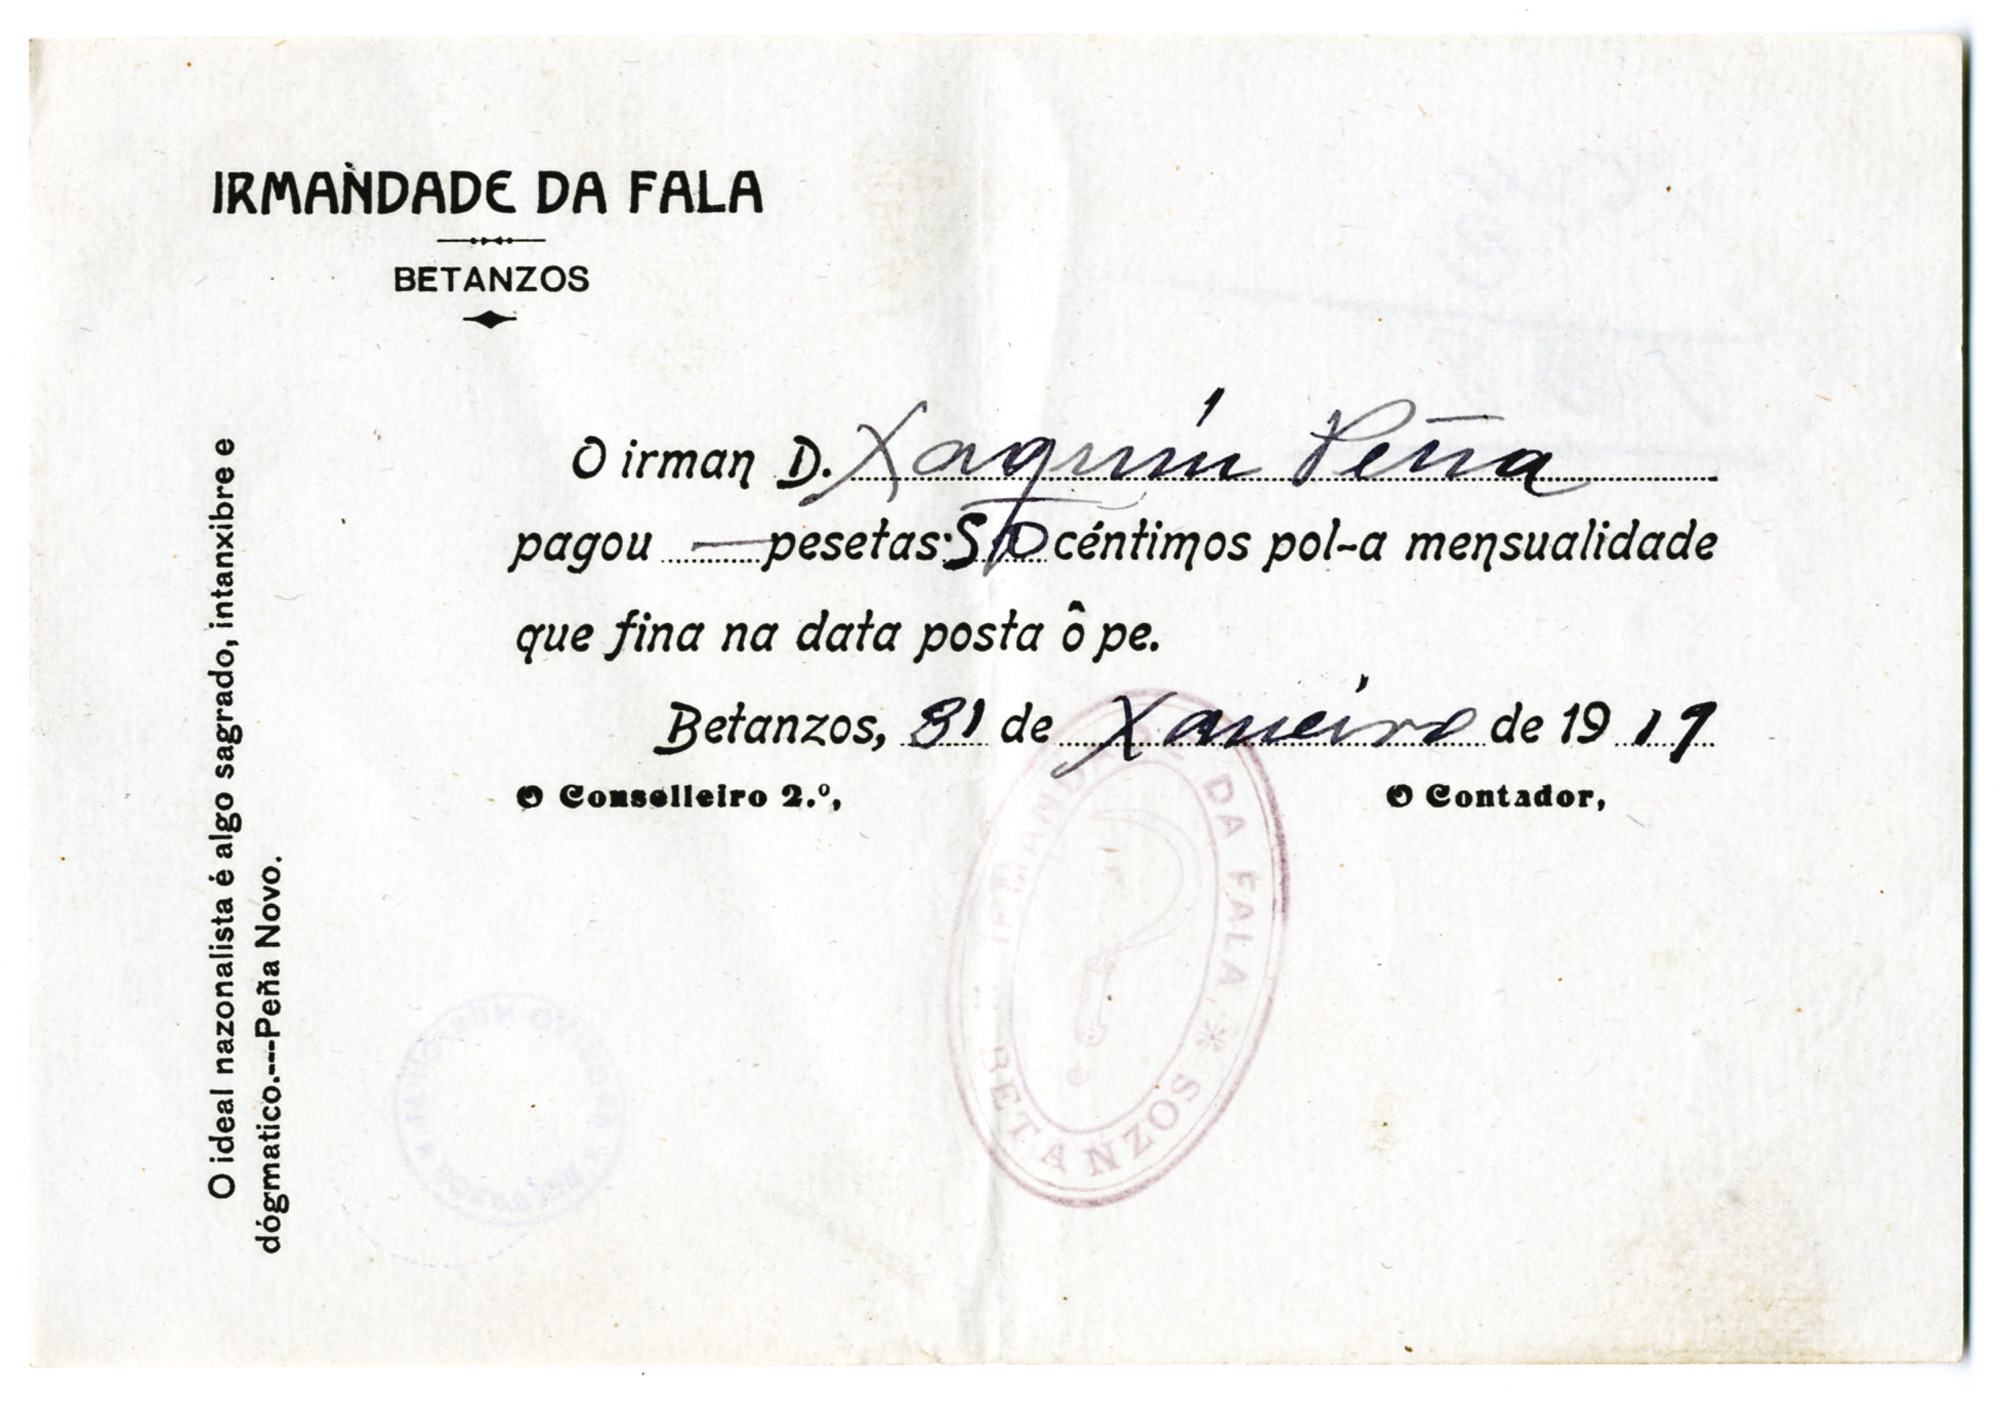 IRMANDADE DA FALA
BETANZOS
O irman D. Xaquín Peña
pagou — pesetas 50 céntimos pol-a mensualidade
que fina na data posta ô pe.
Betanzos, 31 de Xaneiro de 1919
O Conselleiro 2.º,
O Contador,
O ideal nazonalista é algo sagrado, intanxibre e
dógmatico.---Peña Novo.
IRMANDADE DA FALA * BETANZOS